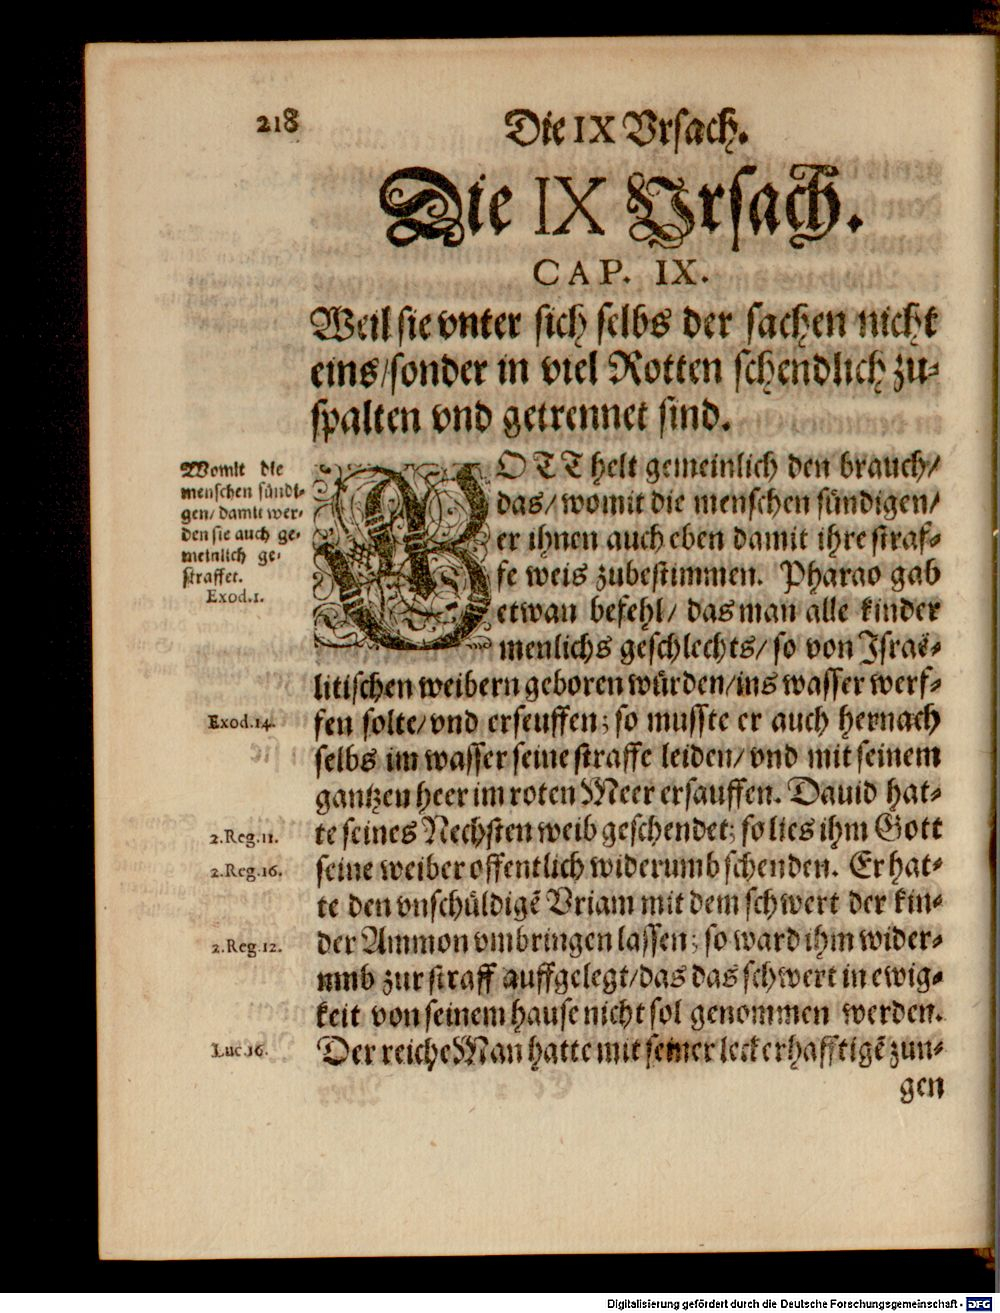 218
Die IX Vrsach.
Die IX Vrsach.
CAP. IX.
Weil sie vnter sich selbs der sachen nicht
eins/sonder in viel Rotten schendlich zu-
spalten vnd getrennet sind.
Womit die
menschen sündi-
gen/ damit wer-
den sie auch ge-
meinlich ge-
straffet.
Exod.1.
GOTT helt gemeinlich den brauch/
das/ womit die menschen sündigen/
er ihnen auch eben damit ihre straf-
fe weis zubestimmen. Pharao gab
etwan befehl/ das man alle kinder
menlichs geschlechts/ so von Israë-
litischen weibern geboren würden/ins wasser werf-
Exod.14.
fen solte/ vnd erseuffen; so musste er auch hernach
selbs im wasser seine straffe leiden/ vnd mit seinem
gantzen heer im roten Meer ersauffen. Dauid hat-
2.Reg.11.
te seines Nechsten weib geschendet; so lies ihm Gott
2.Reg.16.
seine weiber offentlich widerumb schenden. Er hat-
te den vnschüldigē Vriam mit dem schwert der kin-
2.Reg.12.
der Ammon vmbringen lassen; so ward ihm wider-
umb zur straff auffgelegt/das das schwert in ewig-
keit von seinem hause nicht sol genommen werden.
Luc.16.
Der reiche Man hatte mit seiner leckerhafftigē zun-
gen
Digitalisierung gefördert durch die Deutsche Forschungsgemeinschaft - DFG